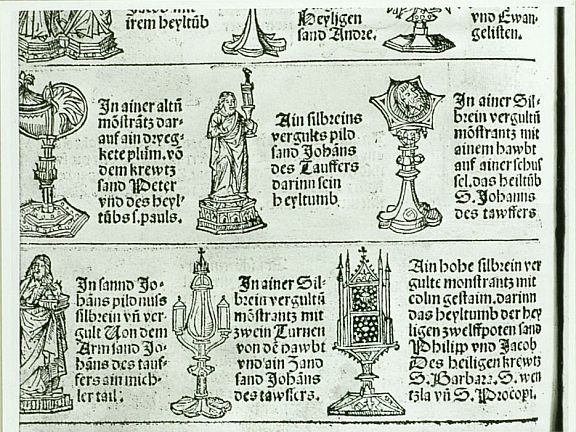 Jacob mit
irem heyltūb
Heyligen
sand Andre.
vnd Ewan-
gelisten.
In ainer altn̄
mōstrātz dar-
auf ain dryeg-
kete plūm. vō
dem krewtz
sand Peter
vnd des heyl-
tūbs s. pauls.
Ain silbreins
vergults pild
sand Johāns
des Tauffers
darinn sein
heyltumb
In ainer Sil-
brein vergultn̄
mōstrantz mit
ainem hawbt
auf ainer schus
sel. das heiltūb
S. Johanns
des tawffers
In sannd Jo-
hāns pild nuss
silbrein vn̄ ver-
gult Von dem
Arm sand Jo-
hāns des tauf-
fers ain mich-
ler tail.
In ainer Sil-
brein vergultn̄
mōstrantz mit
zwein Turnen
von dē hawbt
vnd ain Zand
sand Johāns
des tawffers.
Ain hohe silbrein ver
gulte monstrantz mit
edlin gestaim. darinn
das heyltumb der hey
ligen zwelffpoten sand
Philipp vnd Jacob
Des heiligen krewtz
S. Barbara. S. wen
tzla vn̄ S. Procopi.